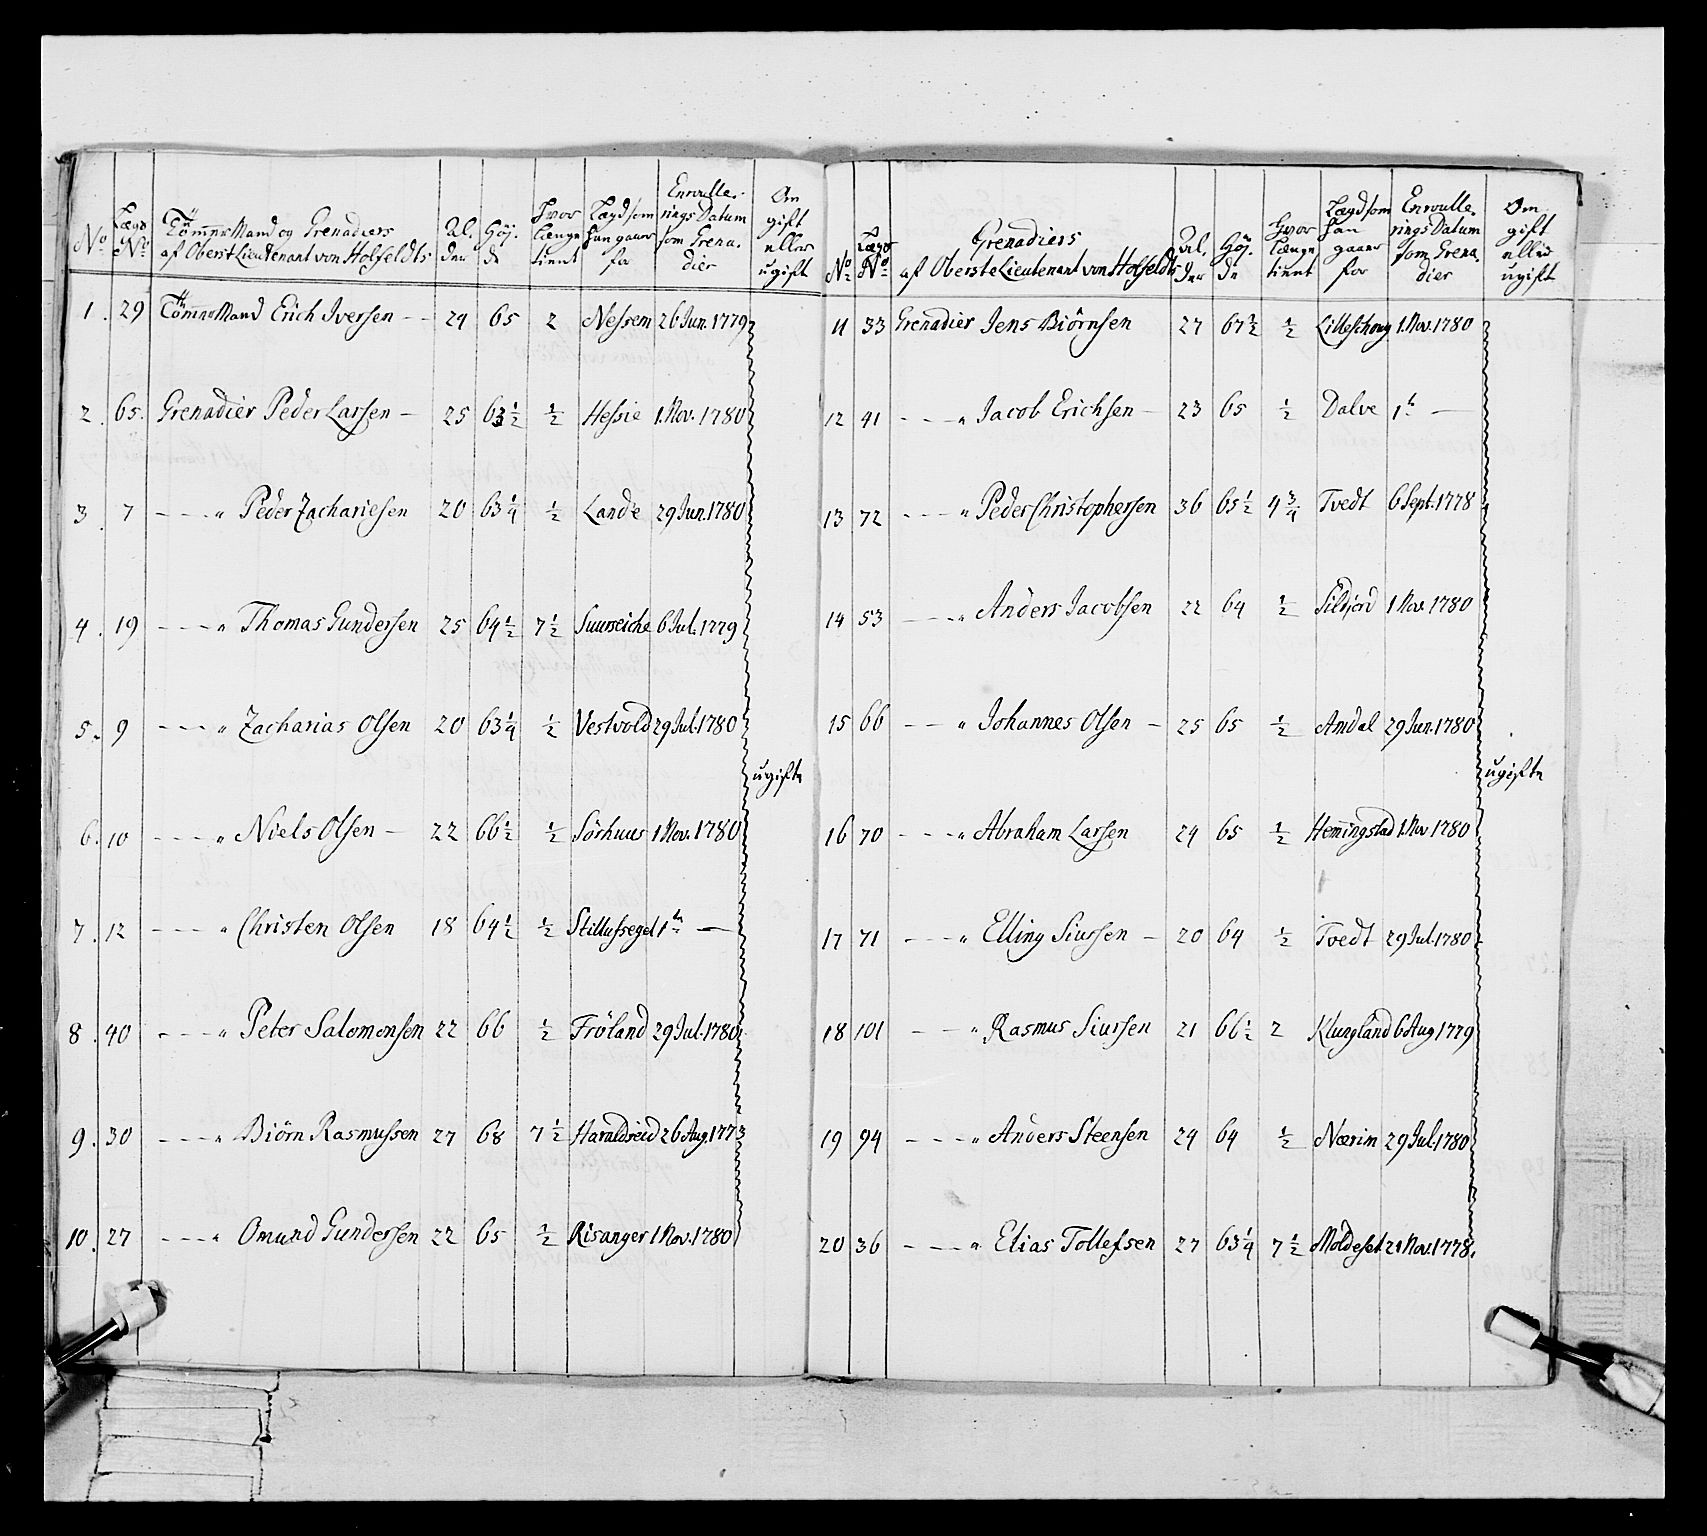 No | Lægd No | Tömmer Mand og Grenadiers af Oberst Lieutenant von Holfeldts | Alder | Höjde | Hvor Længe tient | Lægd som han gaaer for | Enroullerings Datum som Grenadier | Om gift eller ugift
1. | 29 | Tömmer Mand Erich Iversen - - | 24 | 65 | 2 | Nessem | 26 Jun. 1779
2. | 65. | Grenadier Peder Larsen - | 25 | 63 1/2 | 1/2 | Hessie | 1. Nov. 1780
3. | 7 | - - - " Peder Zachariesen | 20 | 63 1/4 | 1/2 | Lande | 29 Jun. 1780
4. | 19 | - - - " Thomas Gundersen | 25 | 64 1/2 | 7 1/2 | Suureiche | 6 Jul. 1779
5. | 9 | - - - " Zacharias Olsen | 20 | 63 1/4 | 1/2 | Vestvold | 29 Jul. 1780
ugifte
6. | 10 | - - - " Niels Olsen - | 22 | 66 1/2 | 1/2 | Sörhuus | 1. Nov. 1780
7. | 12 | - - - " Christen Olsen | 18 | 64 1/2 | 1/2 | Stillufsegel | 1ste —
8. | 40 | - - - " Peter Salomonsen | 22 | 66 | 1/2 | Fröland | 29 Jul. 1780
9. | 30 | - - - " Biörn Rasmussen | 27 | 68 | 7 1/2 | Haraldseid | 26 Aug. 1773
10. | 27 | - - - " Omund Gundersen | 22 | 65 | 1/2 | Risanger | 1 Nov. 1780
No | Lægd No | Grenadiers af Oberste Lieutenant von Holfeldts | Alder | Höjde | Hvor Længe tient | Lægd som han gaaer for | Enroullerings Datum som Grenadier | Om gift eller ugift
11 | 33 | Grenadier Jens Biörnsen | 27 | 67 1/2 | 1/2 | Lilleschoug | 1. Nov. 1780
12 | 41 | - - - " Jacob Erichsen - | 23 | 65 | 1/2 | Dalve | 1ste —
13 | 72 | - - - " Peder Christophersen | 36 | 65 1/2 | 4 3/4 | Tvedt | 6 Sept. 1778
14 | 53 | - - - " Anders Jacobsen | 22 | 64 | 1/2 | Sildjord | 1 Nov. 1780
15 | 66 | - - " Johannes Olsen - | 25 | 65 | 1/2 | Amdal | 29 Jun. 1780
ugifte
16 | 70 | - - - " Abraham Larsen | 24 | 65 | 1/2 | Hemingstad | 1. Nov 1780
17 | 71 | - - - " Elling Siursen - | 20 | 64 | 1/2 | Tvedt | 29 Jul. 1780
18 | 101 | - - " Rasmus Siursen | 21 | 66 1/2 | 2 | Klungland | 6 Aug 1779
19 | 94 | - - - " Anders Steensen | 24 | 64 | 1/2 | Nærim | 29 Jul. 1780
20 | 36 | - - - " Elias Tollefsen | 27 | 63 1/4 | 7 1/2 | Moldeset | 21 Nov. 1778.